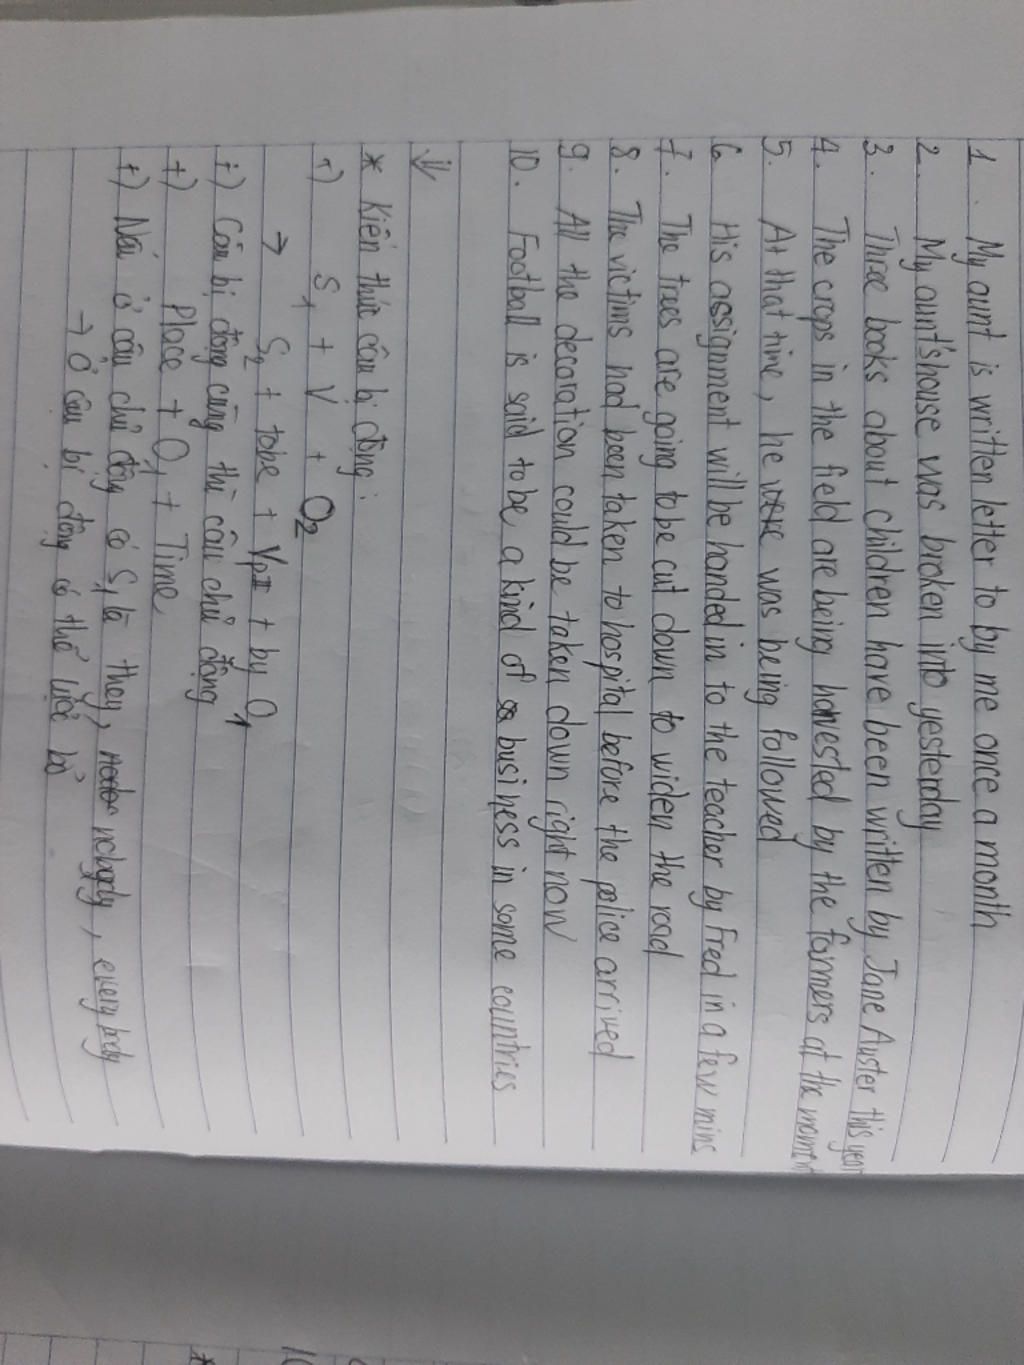 1. My aunt is written letter to by me once a month
2. My aunt's house was broken into yesterday
3. Three books about children have been written by Jane Auster this year
4. The crops in the field are being havested by the farmers at the moment
5. At that time, he was being followed
6. His assignment will be handed in to the teacher by Fred in a few mins
7. The trees are going to be cut down to widen the road
8. The victims had been taken to hospital before the police arrived
9. All the decoration could be taken down right now
10. Football is said to be a kind of business in some countries
⇓
* Kiến thức câu bị động:
+) S1 + V + O2
→ S2 + tobe + VpII + by O1
+) Câu bị động cùng thì câu chủ động
+) Place + O1 + Time
+) Nếu ở câu chủ động có S1 là they, nobody, everybody
→ Ở câu bị động có thể lược bỏ